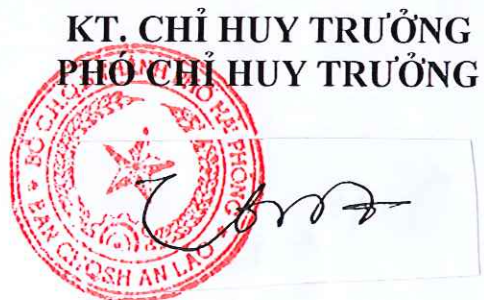 KT. CHỈ HUY TRƯỞNG
PHÓ CHỈ HUY TRƯỞNG
BỘ CH.Q.S THÀNH PHỐ HẢI PHÒNG
BAN CHQSH AN LÃO